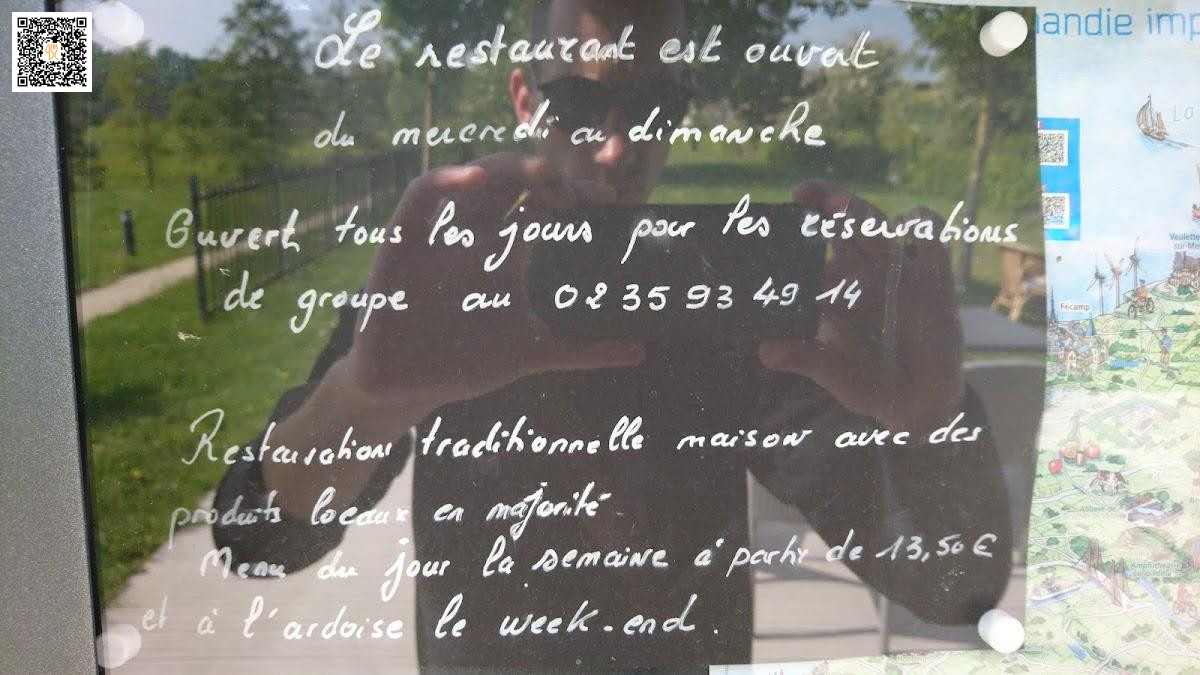 Le restaurant est ouvert
du mercredi au dimanche
Ouvert tous les jours pour les réservations
de groupe au 02 35 93 49 14
Restauration traditionnelle maison avec des
produits locaux en majorité
Menu du jour la semaine à partir de 13,50 €
et à l'ardoise le week-end.
andie imp
La
Veulettes
sur-Mer
Fécamp
Abbaye de